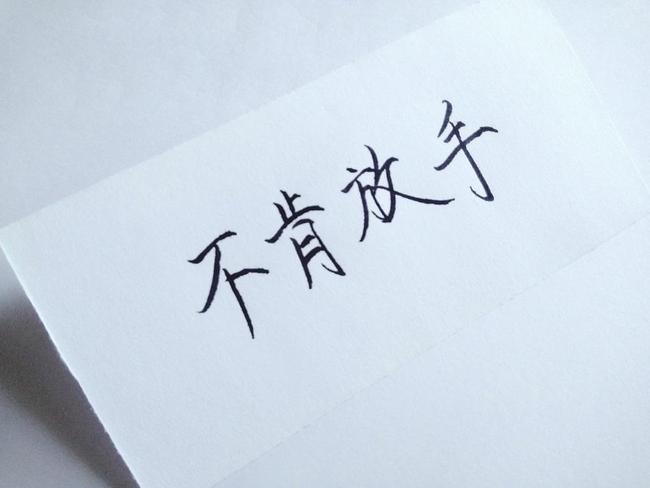 不肯放手